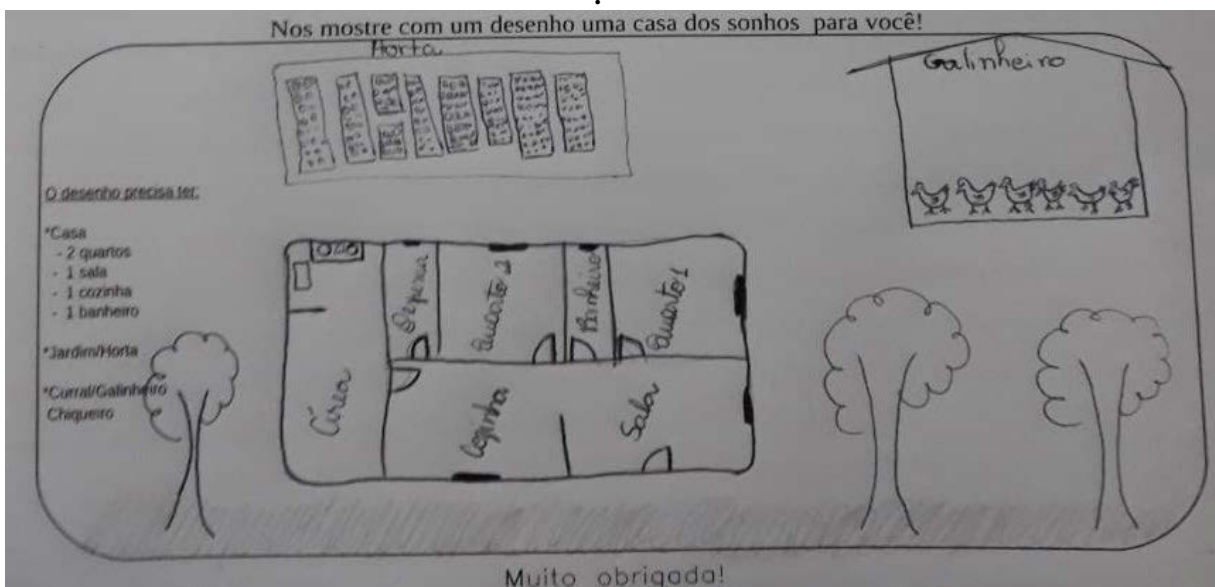 Nos mostre com um desenho uma casa dos sonhos para você!
Horta
Galinheiro
O desenho precisa ter:
*Casa
- 2 quartos
- 1 sala
- 1 cozinha
- 1 banheiro
*Jardim/Horta
*Curral/Galinheiro
Chiqueiro
Área
Dispensa
Quarto 2
Banheiro
Quarto 1
Cozinha
Sala
Muito obrigada!